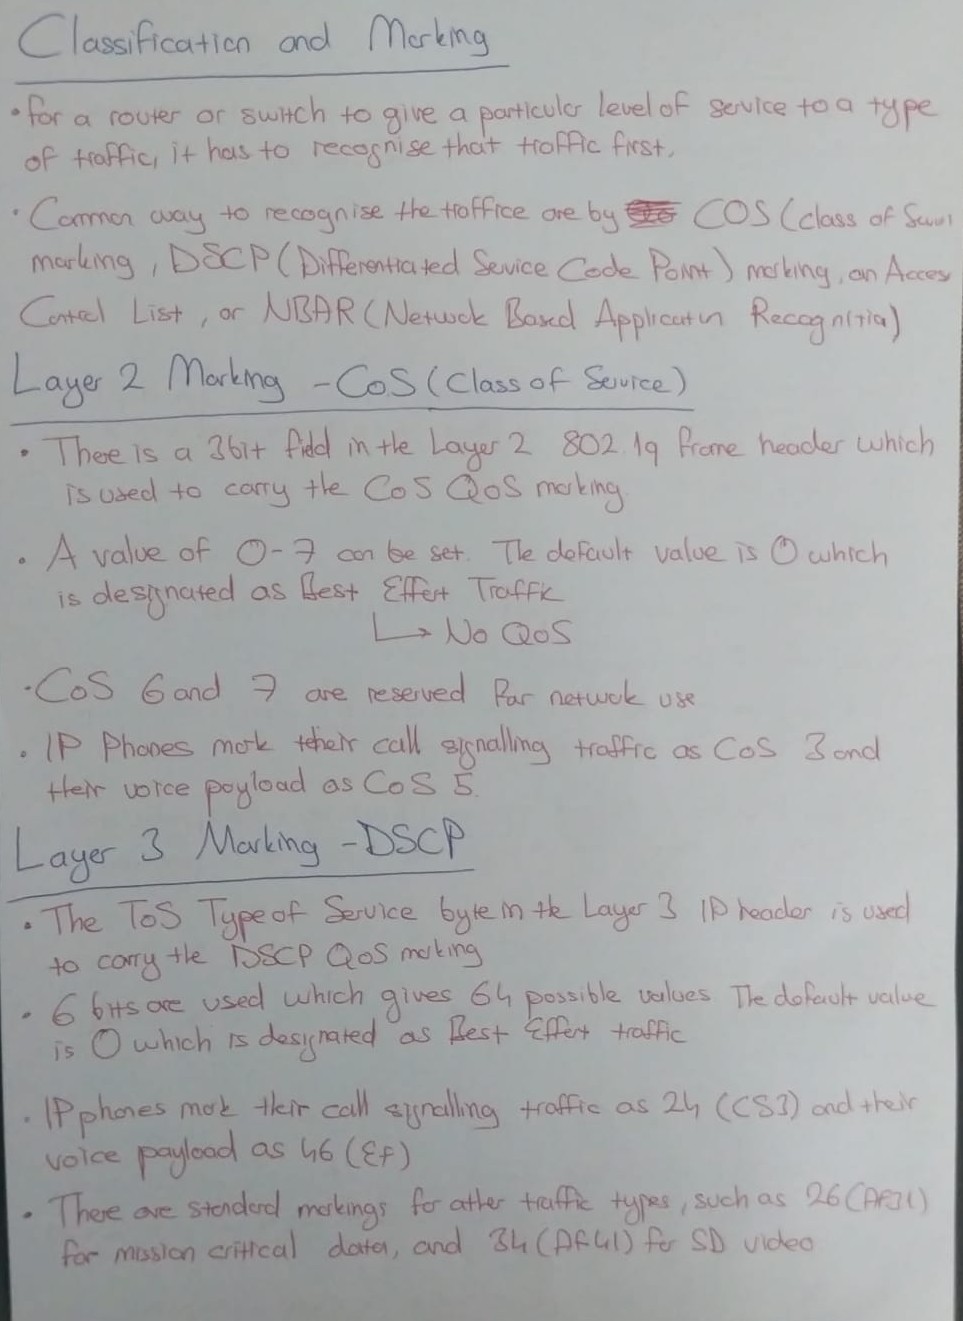 Classification and Marking
• for a router or switch to give a particular level of service to a type
of traffic, it has to recognise that traffic first.
• Common way to recognise the traffice are by COS (class of
marking, DSCP (Differentiated Service Code Point) marking, an Access
Control List, or NBAR (Network Based Application Recognition)
Layer 2 Marking - CoS (Class of Service)
• There is a 3bit field in the Layer 2 802.1q frame header which
is used to carry the CoS QoS marking.
• A value of 0-7 can be set. The default value is 0 which
is designated as Best Effort Traffic
↳ No QoS
• CoS 6 and 7 are reserved for network use
• IP Phones mark their call signalling traffic as CoS 3 and
their voice payload as CoS 5.
Layer 3 Marking - DSCP
• The ToS Type of Service byte in the Layer 3 IP header is used
to carry the DSCP QoS marking
• 6 bits are used which gives 64 possible values The default value
is 0 which is designated as Best Effort traffic
• IP phones mark their call signalling traffic as 24 (CS3) and their
voice payload as 46 (EF)
• There are standard markings for other traffic types, such as 26 (AF31)
for mission critical data, and 34 (AF41) for SD video